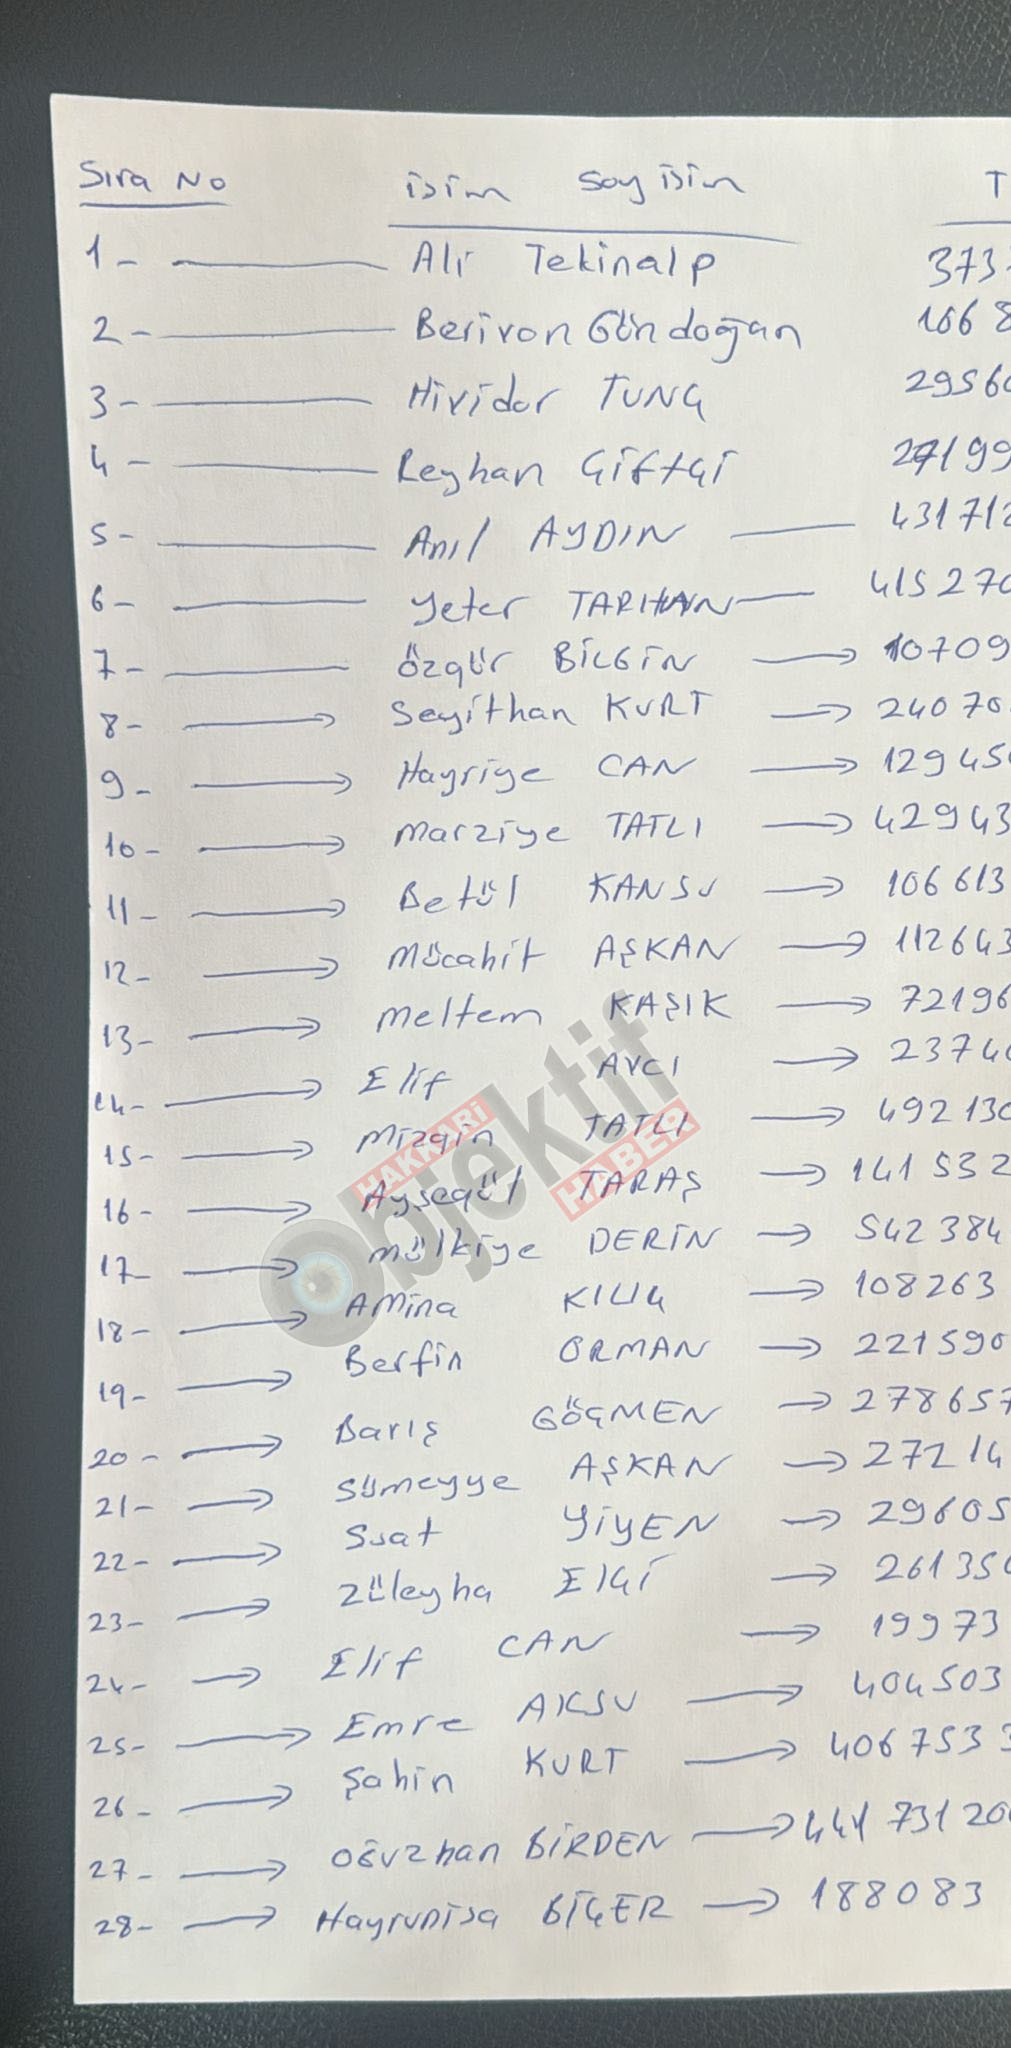 Sıra No isim Soyisim T
1- Ali Tekinalp 373
2- Berivan Gündoğan 1068
3- Hividar TUNÇ 2956
4- Reyhan Çiftçi 27199
5- Anıl AYDIN 431712
6- Yeter TARHAN 415270
7- Özgür BİLGİN 10709
8- Seyithan KURT 24070
9- Hayriye CAN 12945
10- Marziye TATLI 42943
11- Betül KANSU 106613
12- Mücahit AŞKAN 112643
13- Meltem KAŞIK 72196
14- Elif AVCI 2374
15- Mizgin TATLI 492130
16- Ayşegül TARAŞ 141532
17- Mülkiye DERİN 542384
18- Amina KILIÇ 108263
19- Berfin ORMAN 221590
20- Barış GÖÇMEN 278657
21- Sümeyye AŞKAN 27214
22- Suat YİYEN 29605
23- Züleyha ELÇİ 26135
24- Elif CAN 19973
25- Emre AKSU 404503
26- Şahin KURT 4067533
27- Oğuzhan BİRDEN 73120
28- Hayrunisa BİÇER 188083
HAKKARİ
Objektif
HABER